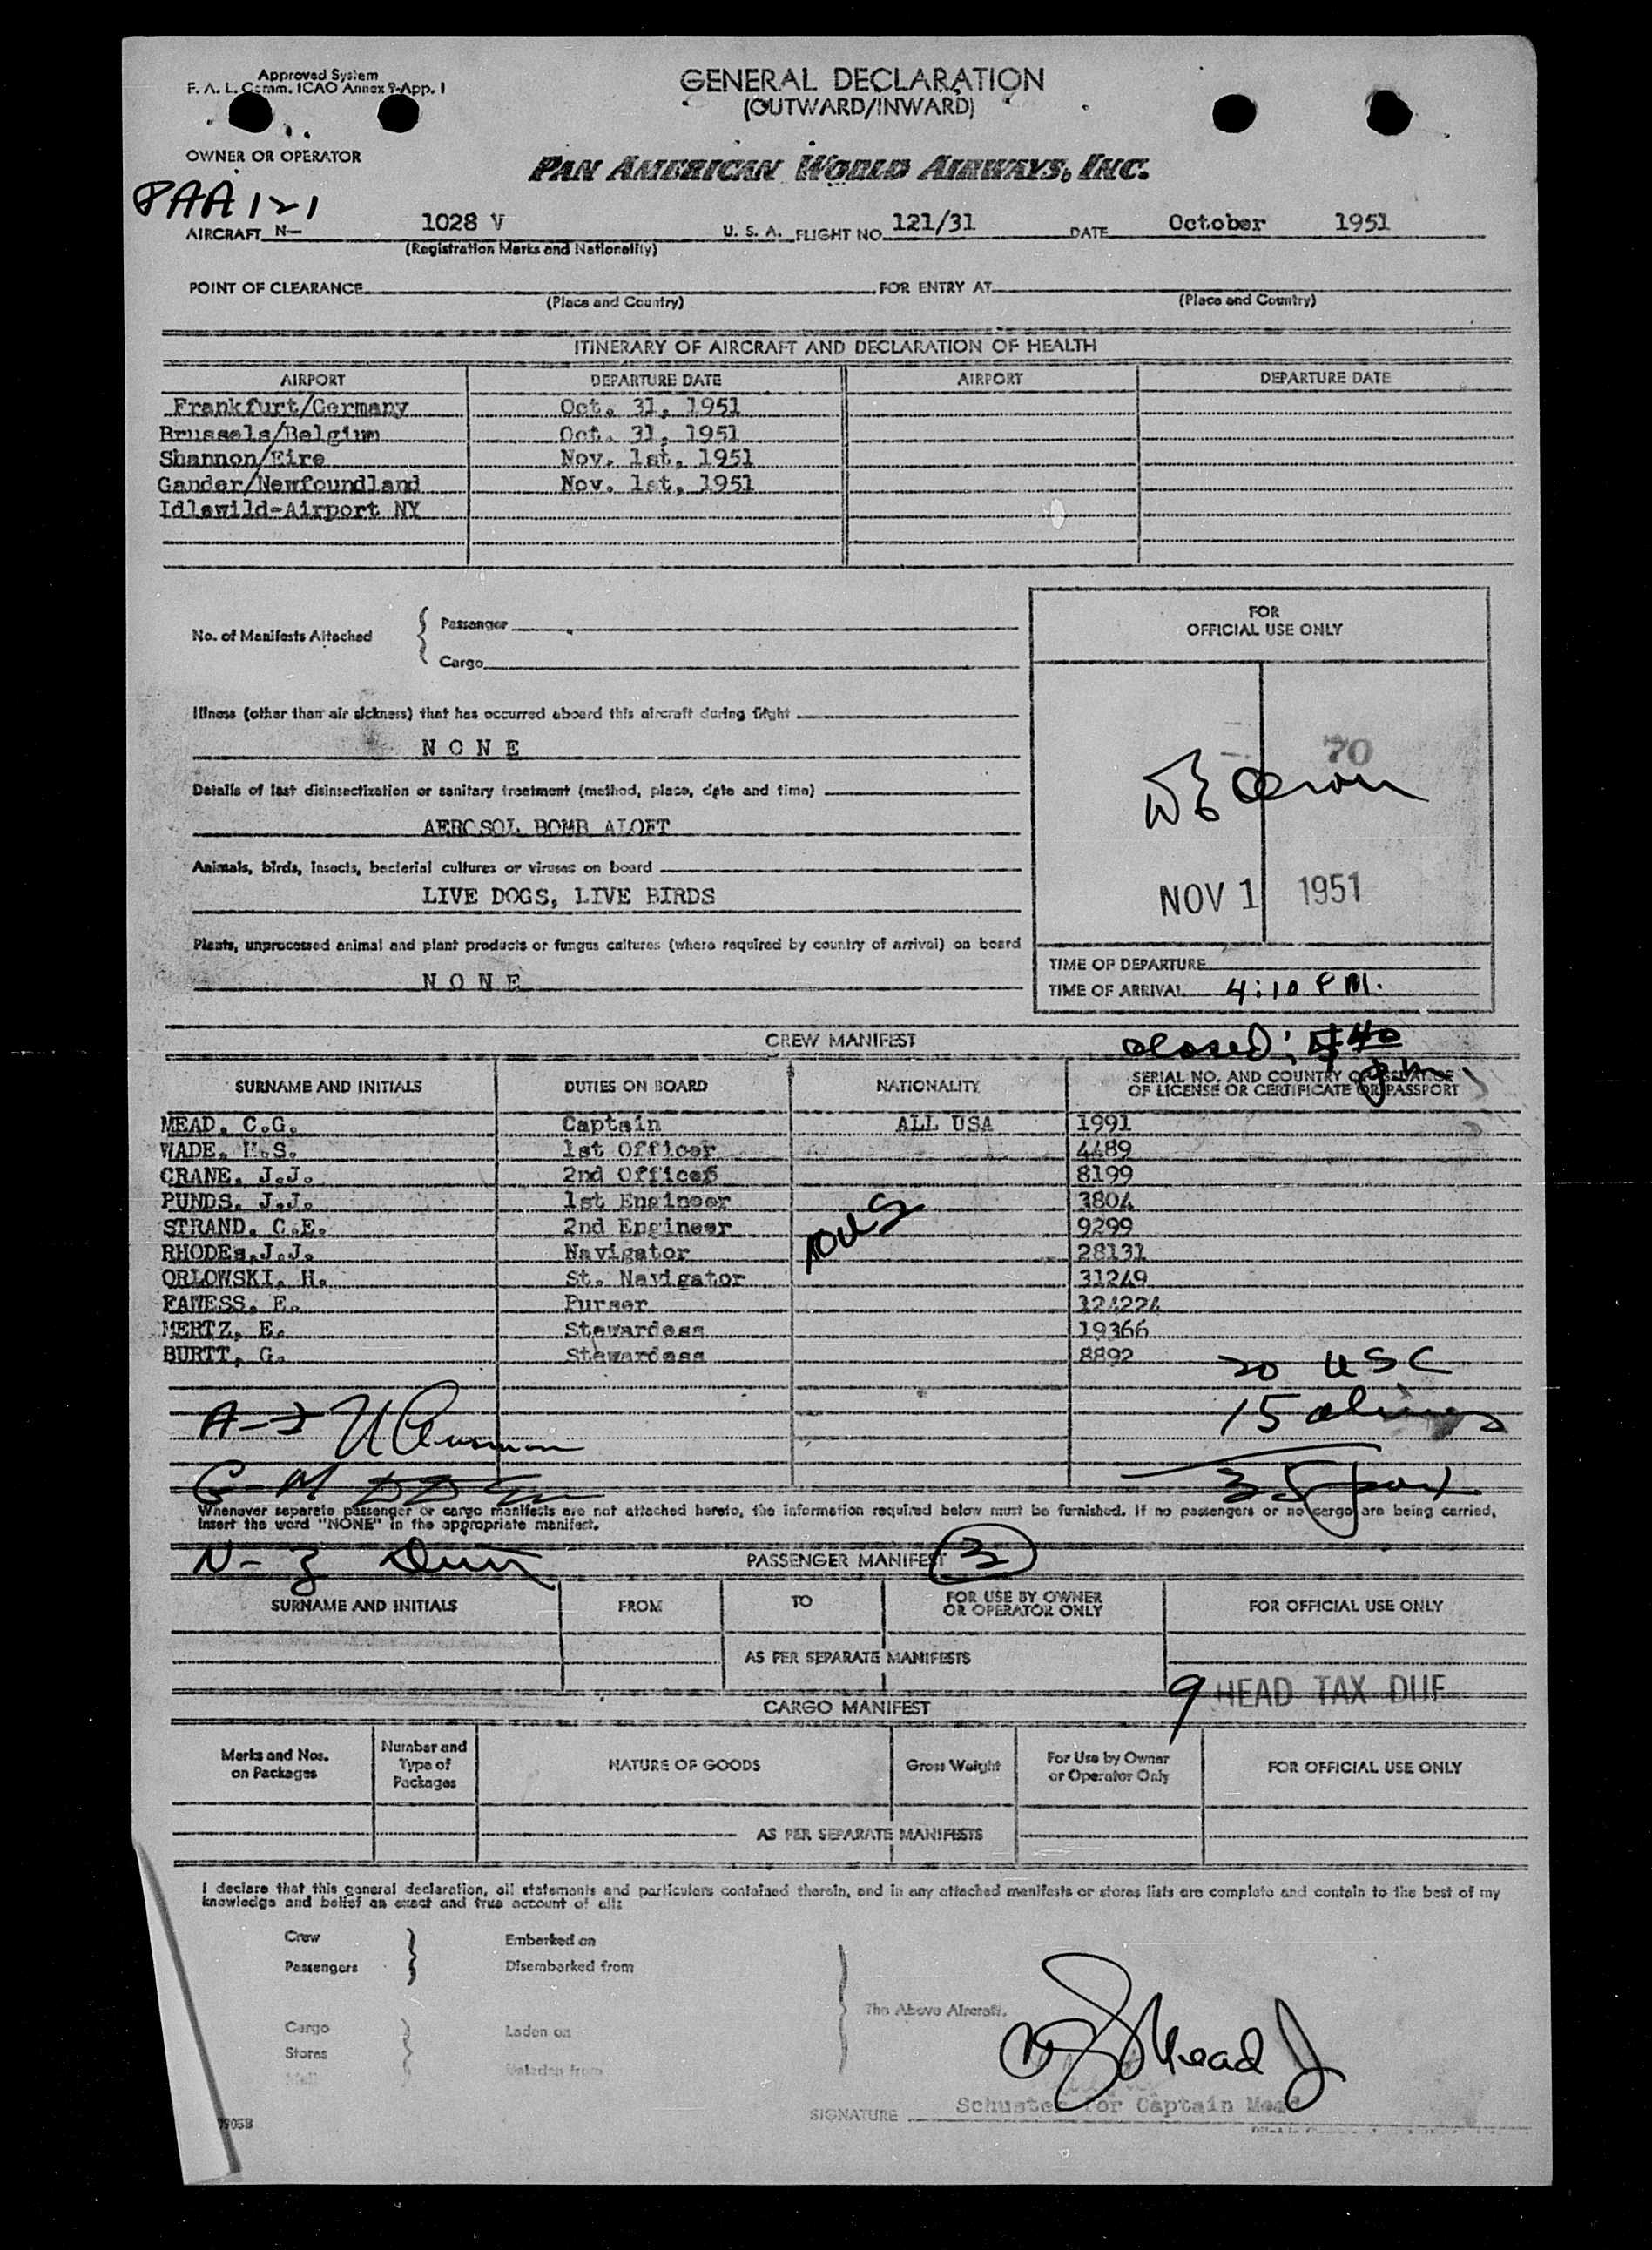 Approved System
F. A. L. Comm. ICAO Annex 9-App. 1
GENERAL DECLARATION
(OUTWARD/INWARD)
OWNER OR OPERATOR
PAN AMERICAN WORLD AIRWAYS, INC.
PAA 121
AIRCRAFT N— 1028 V U. S. A. FLIGHT NO. 121/31 DATE October 1951
(Registration Marks and Nationality)
POINT OF CLEARANCE FOR ENTRY AT
(Place and Country) (Place and Country)
ITINERARY OF AIRCRAFT AND DECLARATION OF HEALTH
AIRPORT DEPARTURE DATE AIRPORT DEPARTURE DATE
Frankfurt/Germany Oct. 31, 1951
Brussels/Belgium Oct. 31, 1951
Shannon/Eire Nov. 1st, 1951
Gander/Newfoundland Nov. 1st, 1951
Idlewild-Airport NY
FOR
OFFICIAL USE ONLY
No. of Manifests Attached
Passenger
Cargo
Illness (other than air sickness) that has occurred aboard this aircraft during flight
N O N E
70
Details of last disinsectization or sanitary treatment (method, place, date and time)
AEROSOL BOMB ALOFT
Animals, birds, insects, bacterial cultures or viruses on board
LIVE DOGS, LIVE BIRDS
NOV 1 1951
Plants, unprocessed animal and plant products or fungus cultures (where required by country of arrival) on board
N O N E
TIME OF DEPARTURE
TIME OF ARRIVAL 4:10 PM.
CREW MANIFEST
closed:
SURNAME AND INITIALS DUTIES ON BOARD NATIONALITY SERIAL NO. AND COUNTRY OF ISSUANCE
OF LICENSE OR CERTIFICATE OR PASSPORT
MEAD, C.G. Captain ALL USA 1991
WADE, 1st Officer 4489
CRANE, J.J. 2nd Officer 8199
PUNDS, J.J. 1st Engineer 3804
STRAND, C.E. 2nd Engineer 9299
RHODEs, J.J. Navigator 28131
ORLOWSKI, H. St. Navigator 31249
E. Purser 124224
MERTZ, E. Stewardess 19366
BURTT, G. Stewardess 8892
10 US
20 USC
15 aliens
A-F
35
G-M
Whenever separate passenger or cargo manifests are not attached hereto, the information required below must be furnished. If no passengers or no cargo are being carried,
insert the word "NONE" in the appropriate manifest.
N-Z
PASSENGER MANIFEST 3
SURNAME AND INITIALS FROM TO FOR USE BY OWNER
OR OPERATOR ONLY FOR OFFICIAL USE ONLY
AS PER SEPARATE MANIFESTS
9 HEAD TAX DUE
CARGO MANIFEST
Marks and Nos.
on Packages
Number and
Type of
Packages
NATURE OF GOODS
Gross Weight
For Use by Owner
or Operator Only
FOR OFFICIAL USE ONLY
AS PER SEPARATE MANIFESTS
I declare that this general declaration, all statements and particulars contained therein, and in any attached manifests or stores lists are complete and contain to the best of my
knowledge and belief an exact and true account of all:
Crew Embarked on
Passengers Disembarked from
The Above Aircraft.
Cargo Laden on
Stores
Mail Unladen from
Mead Jr
SIGNATURE Schuster for Captain Mead